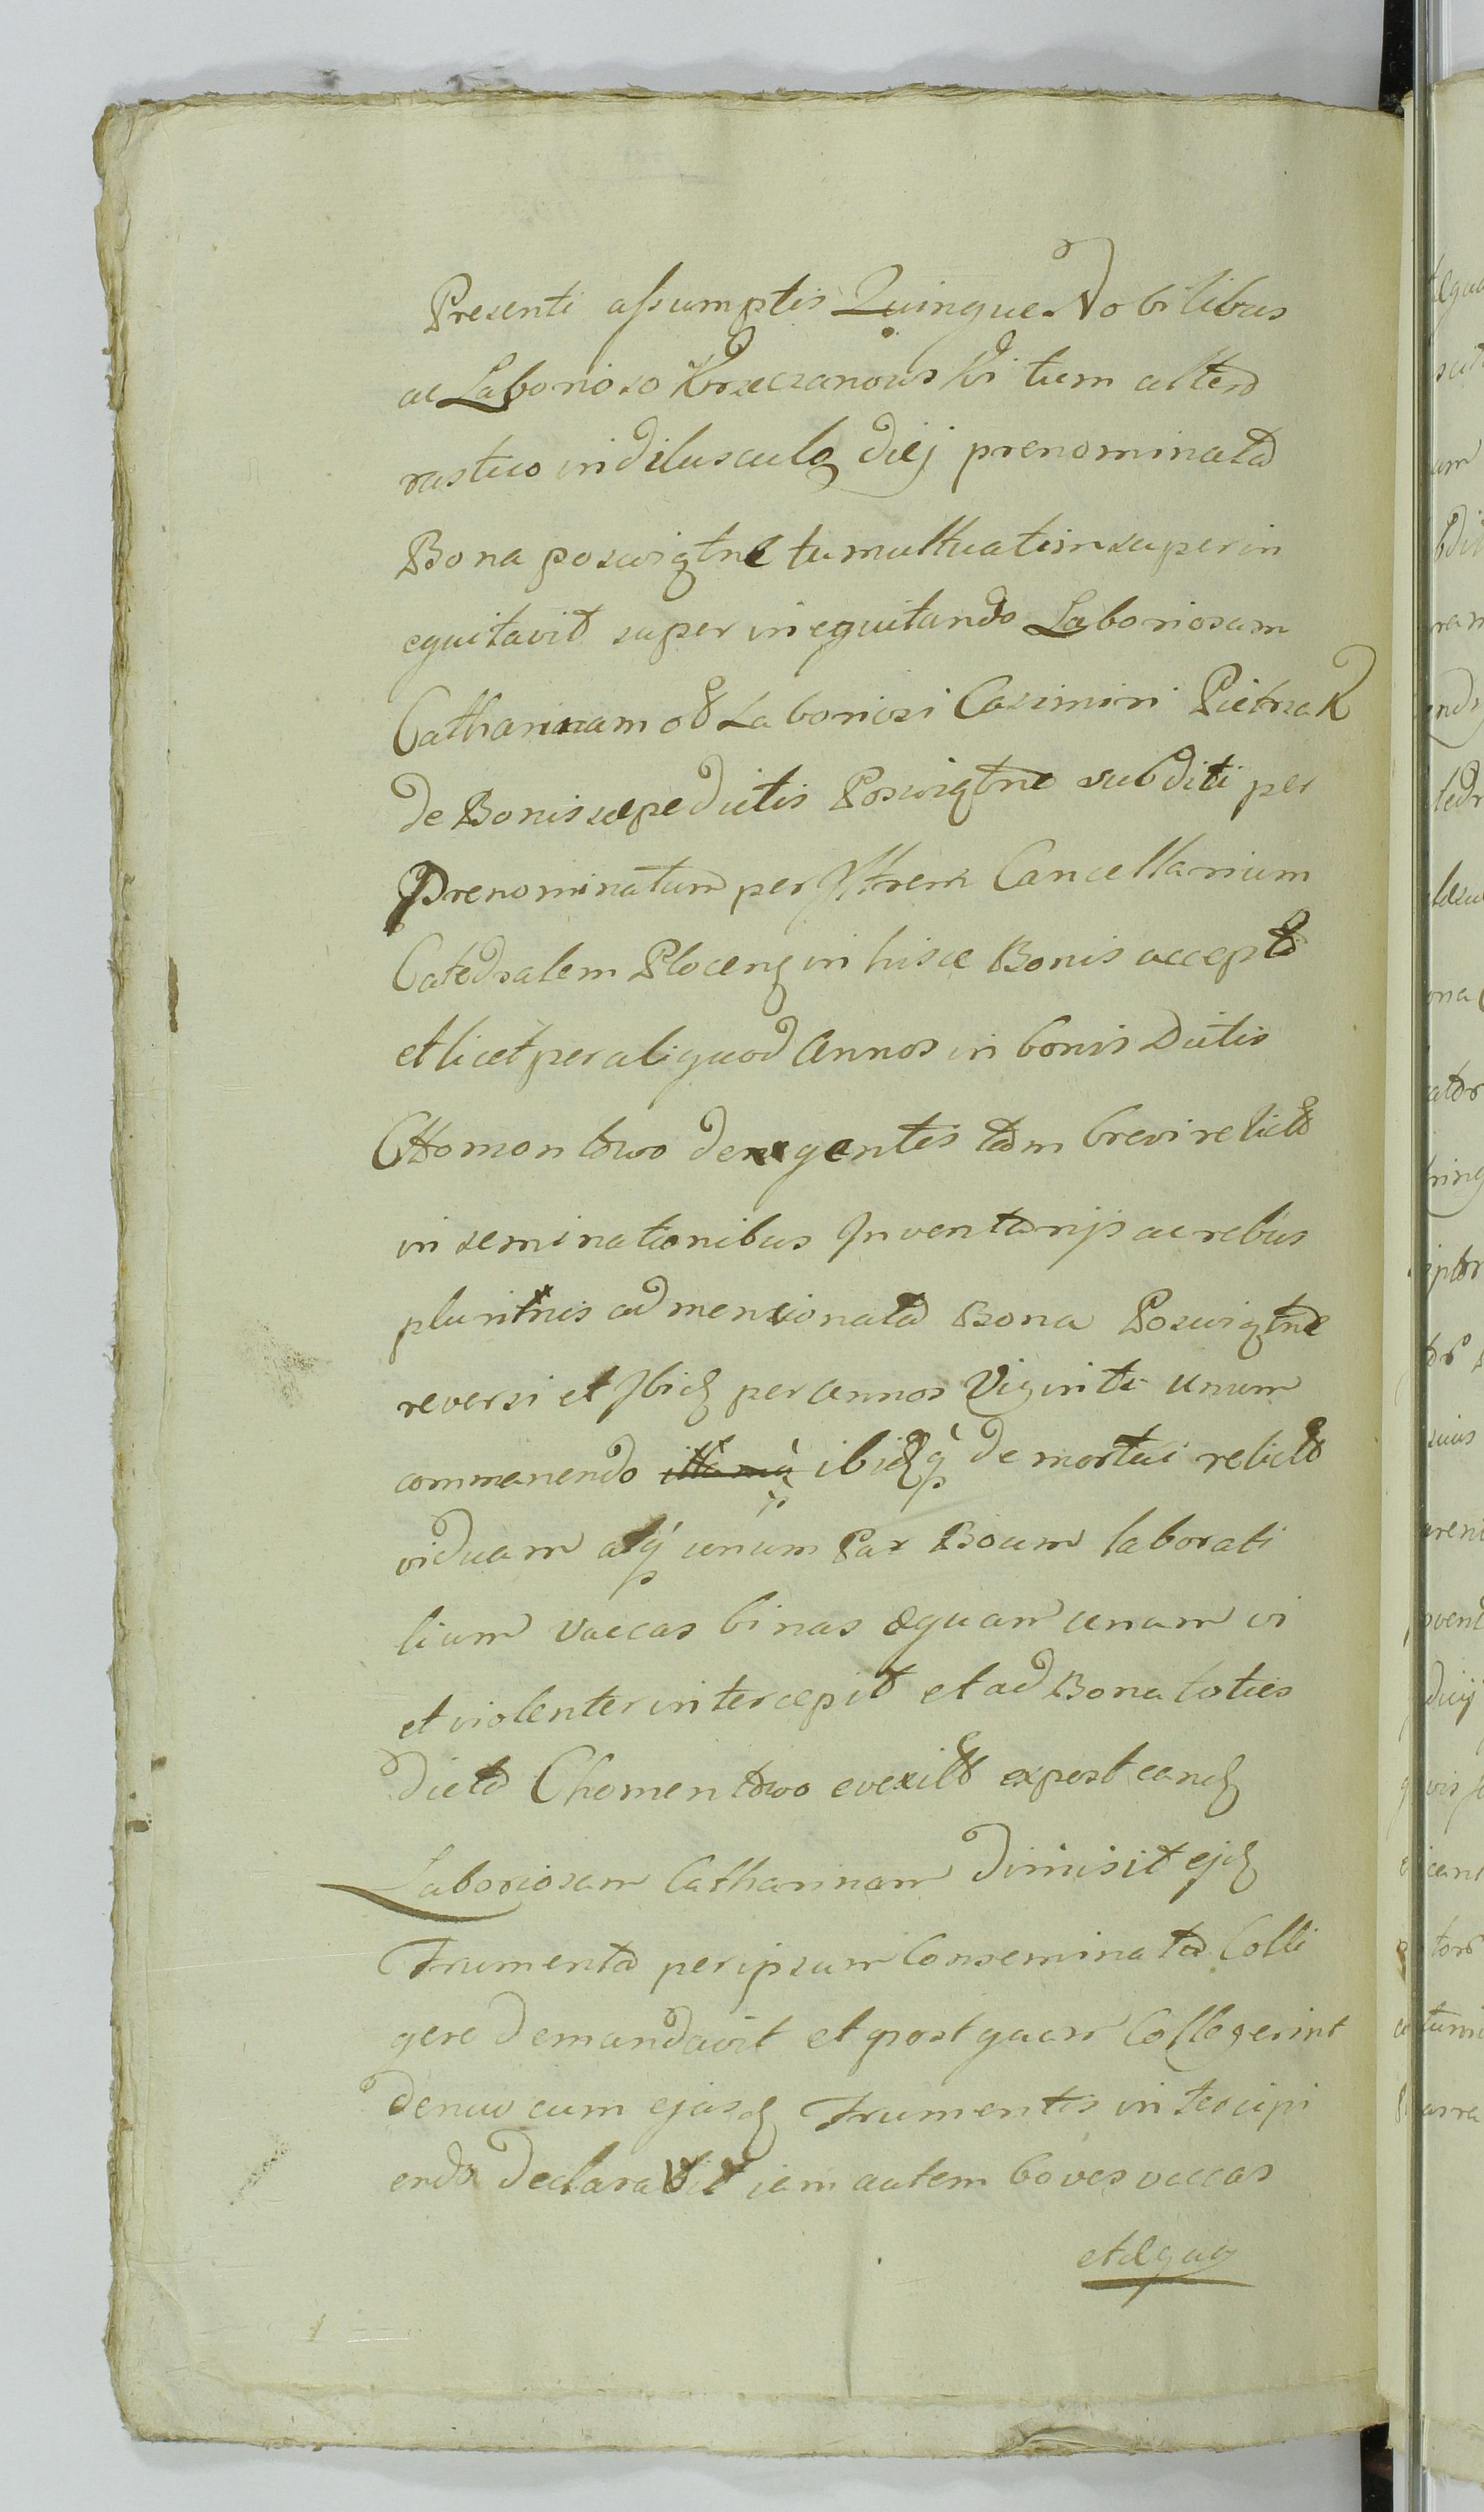 Presenti assumptis Quinque Nobilibus
ac Laborioso Krzeczanowski tum altero
rastico in dilusculo diej prenominata
Bona poswiętne tumultuatim superin
equitavit super inequitando Laboriosam
Catharinam os Laboriosi Casimiri Pietrzak
de Bonis sæpe dictis Poswiętne subditi per
Prenominatum per Illtrem Cancellarium
Catedralem Plocen in hisce Bonis accepto
et licet per aliquod Annos in bonis Dictis
Chomontowo degentes tam brevi relicto
in seminationibus Inventarijs ac rebus
plurimis ad mencionata Bona Poswiętne
reversi et Ibid per annos Viginti unum
commanendo ibidq demortui relicto
viduam atq unum Par Boum laborati
lium vaccas binas equam unam vi
et violenter intercepit et ad Bona toties
dicta Chomentowo evexit expost eand
Laboriosam Catharinam dimisit ejd
Frumenta per ipsum Conseminata Colli
gere demandavit et postquam Collegerint
denuo cum ejusd Frumentis intercipi
endo declaravit iam autem boves vaccas
et equa